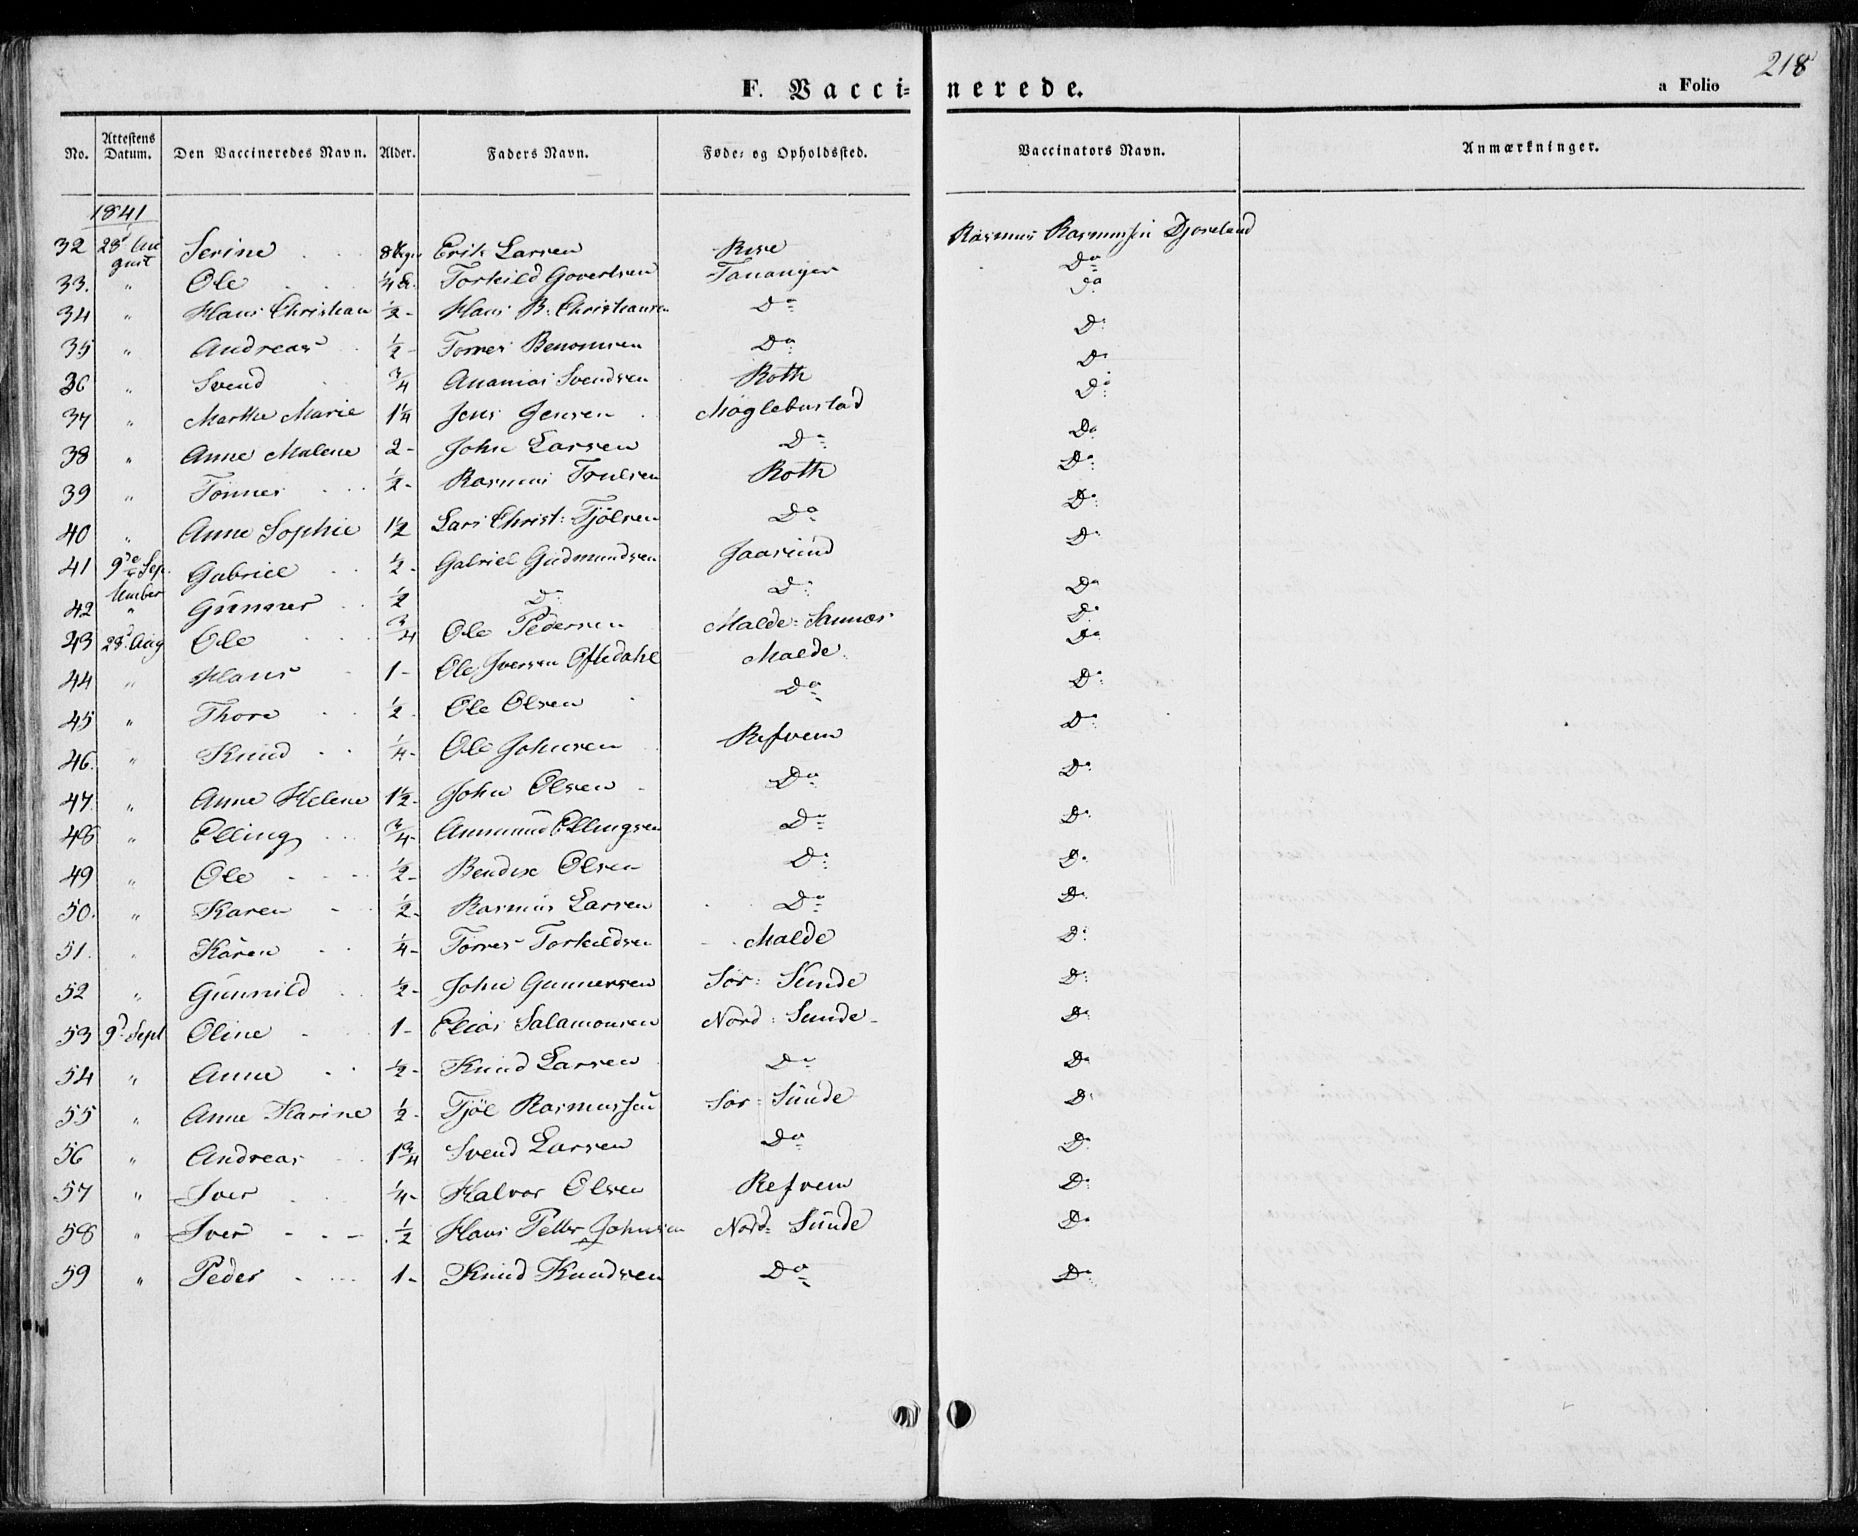 218
F. Vaccinerede.
a Folio
No. Attestens Datum. Den Vaccineredes Navn. Alder. Faders Navn. Føde- og Opholdssted. Vaccinators Navn. Anmærkninger.
1841
32 28 August Serine 8 Erik Larsen Rasmus Rasmussen
33. " Ole 1/4 Torkild Govertsen Tananger Do
34 " Hans Christian 1/2 - Hans B. Christiansen Do Do
35 " Andreas 1/2 - Torres Do D:
36 " Svend 3/4 Ananias Svendsen Roth D:
37 " Marthe Marie 1 1/4 Jens Jensen Møglebustad D:
38 " Anne Malene 2 - John Larsen D: Do
39 " Tønnes 1/2 - Rasmus Trulsen Roth Do
40 " Anne Sophie 1 1/2 Lars Christ: Tjølsen Do Do
41 9de September Gabriel 1/2 - Gabriel Gudmundsen Jaasund Do
42 " Gunner 1/2 D: D: Do
43 28 Aug Ole 3/4 Ole Pedersen Malde- D:
44 " Hans 1 - Ole Iversen Oftedahl Malde Do
45 " Thore 1/2 Ole Olsen Do D:
46. " Knud 1/4 - Ole Johnsen Refvem D:
47 " Anne Helene 1 1/2 - John Olsen Do Do
48 " Elling 3/4 - Ammund Ellingsen Do D:
49 " Ole 1/2 - Bendix Olsen D: D:
50. " Karen 1/2 - Rasmus Larsen D: D:
51. " Karen 1/4 - Torres Torkildsen Malde D:
52 " Gunnild 1/2 - John Gunnersen Sør: Sunde D:
53 9 Sept Oline 1 - Elias Salamonsen Nord: Sunde - D:
54 " Anne 1/2 - Knud Larsen Do Do
55 " Anne Karine 1/2 - Tjøl Rasmussen Sør: Sunde D:
56 " Andreas 1 3/4 Svend Larsen Do D:
57 " Iver 1/4 - Halvor Olsen Refvem D:
58 " Iver 1/2 Hans Petter Johnsen Nord: Sunde Do
59 " Peder 1 - Knud Knudsen Do Do